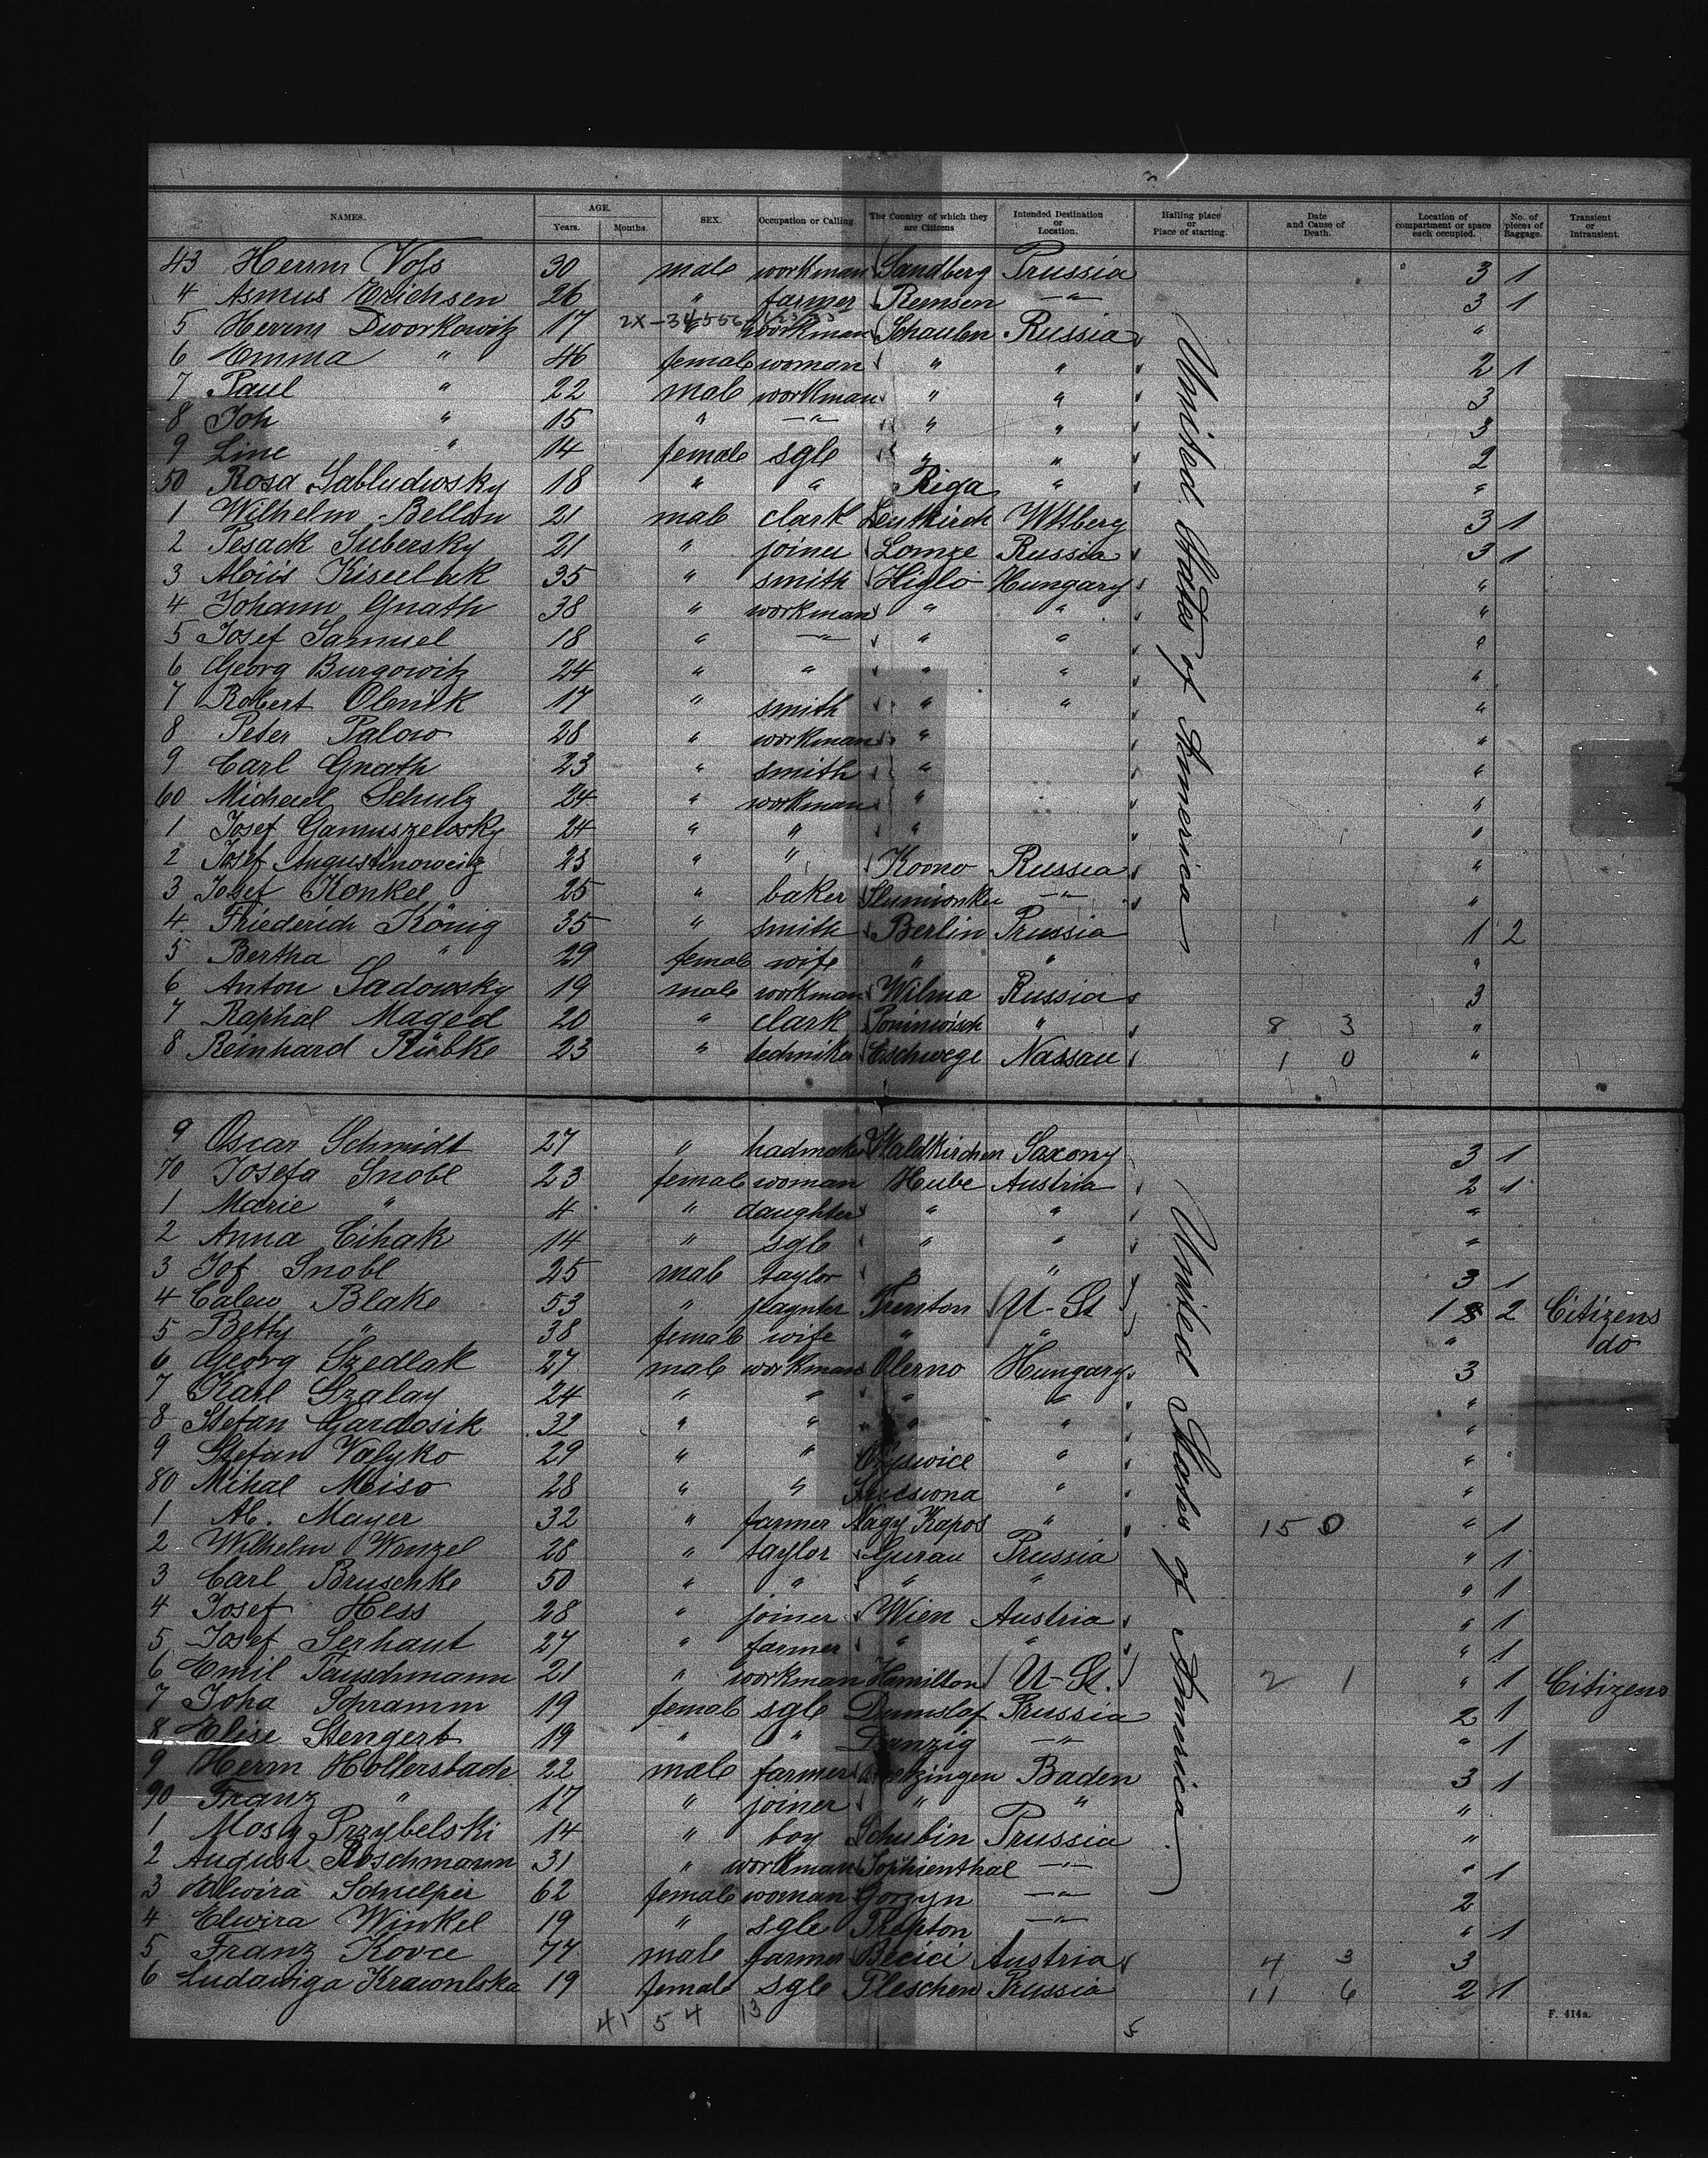 NAMES. AGE. Years. Months. SEX. Occupation or Calling. The Country of which they are Citizens Intended Destination or Location. Halling place or Place of starting. Date and Cause of Death. Location of compartment or space each occupied. No. of pieces of Baggage. Transient or Intransient.
43 Herrm Vofs 30 male workman Sandberg Prussia 3 1
4 Asmus Erichsen 26 " farmer Remsen —"— 3 1
5 Herrm Dworkowitz 17 " workman Schaulen Russia "
6 Emma " 46 female woman " " 2 1
7 Paul " 22 male workman " " 3
8 Joh " 15 " —"— " " 3
9 Line " 14 female sgle " " 2
50 Rosa Sabludwsky 18 " " Riga " "
1 Wilhelm Bellon 21 male clark Leutkirch Wtlberg 3 1
2 Pesack Subersky 21 " joiner Lomze Russia 3 1
3 Aloiis Kiseelbek 35 " smith Higlo Hungary "
4 Johann Gnath 38 " workman " " "
5 Josef Samuel 18 " —"— " " "
6 Georg Burgowitz 24 " " " " "
7 Robert Olenik 17 " smith " " "
8 Peter Palow 28 " workman " "
9 Carl Gnath 23 " smith " "
60 Michael Schulz 24 " workman " "
1 Josef Gamuszelosky 24 " " " "
2 Josef Augustinoweitz 23 " " Kowno Russia "
3 Josef Konkel 25 " baker —"— "
4 Friederich König 35 " smith Berlin Prussia 1 2
5 Bertha " 29 female wife " " "
6 Anton Sadowsky 19 male workman Wilma Russia 3
7 Raphal Maged 20 " clark " 8 3 "
8 Reinhard Rübke 23 " techniker Eschwege Nassau 1 0 "
United States of America
9 Oscar Schmidt 27 " hadmaker Waldkirchen Saxony 3 1
70 Josefa Snobl 23 female woman Hube Austria 2 1
1 Marie " 4 " daughter " " "
2 Anna Cihak 14 " sgle " " "
3 Jof Snobl 25 male taylor " " 3 1
4 Calew Blake 53 " paynter Trenton U-St 1 2 Citizens
5 Betty " 38 female wife " " " do
6 Georg Szedlak 27 male workman Olerno Hungary 3
7 Karl Szalay 24 " " " " "
8 Stefan Gardosik 32 " " " " "
9 Stefan Valyko 29 " " " "
80 Mihal Meiso 28 " " " "
1 Ab. Mayer 32 " farmer Nagy Kapos " 15 0 " 1
2 Wilhelm Wenzel 28 " taylor Gurau Prussia " 1
3 Carl Bruschke 50 " " " " " 1
4 Josef Hess 28 " joiner Wien Austria " 1
5 Josef Serhaut 27 " farmer " " " 1
6 Emil Tauschmann 21 " workman Hamilton U-St. 2 1 " 1 Citizens
7 Joha Schramm 19 female sgle Dumslaf Prussia 2 1
8 Elise Stengert 19 " " Danzig —"— " 1
9 Herm Hollersbach 22 male farmer Baden 3 1
90 Franz " 17 " joiner " " "
1 Mosy Przybelski 14 " boy Schubin Prussia "
2 August Roschmann 31 " workman Sophienthal —"— " 1
3 Elwira Schelper 62 female woman Gorzyn —"— 2
4 Elwira Winkel 19 " sgle Trepton —"— " 1
5 Franz Kovce 77 male farmer Becici Austria 4 3 3
6 Ludawiga Krawnlska 19 female sgle Pleschen Prussia 11 6 2 1
United States of America
41 54 13 5
F. 414a.